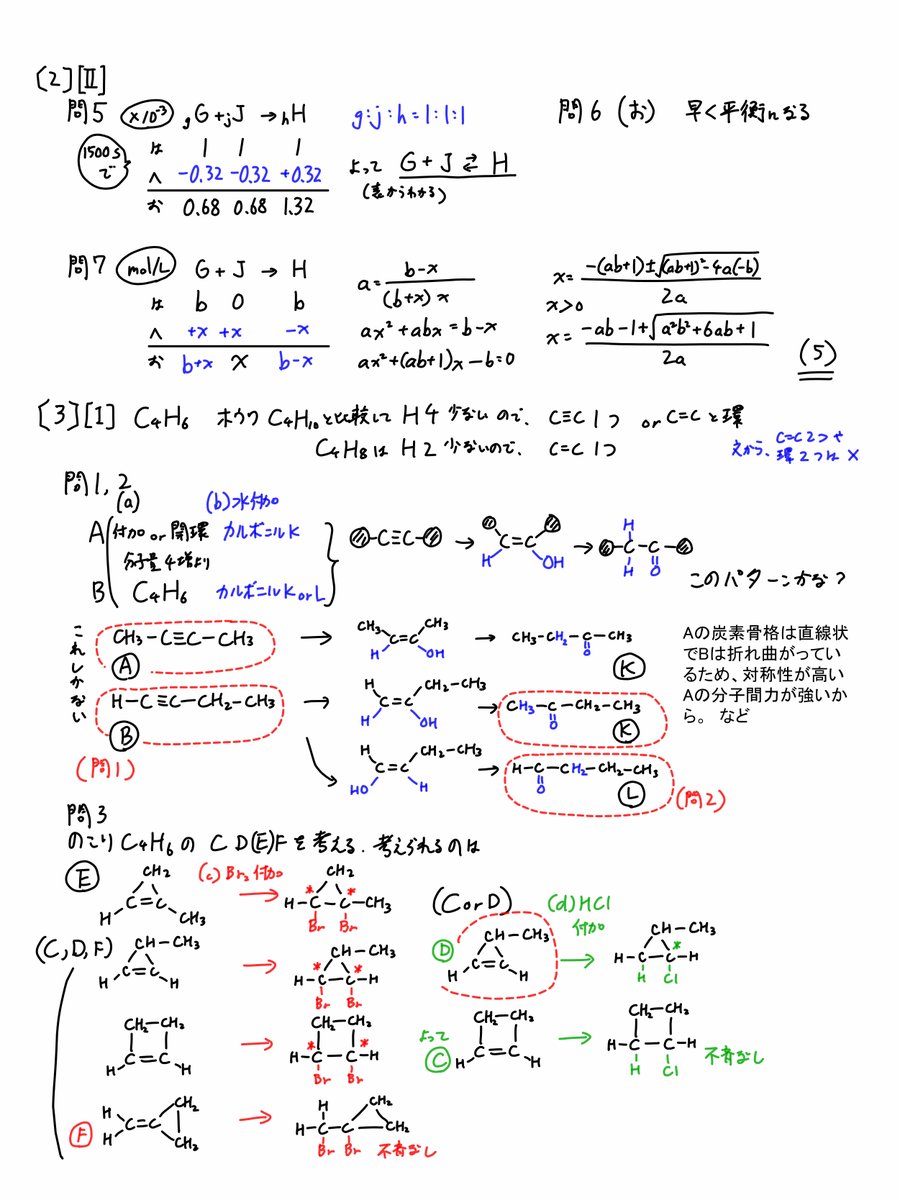 [2][Ⅱ]
問5 ×10⁻³ gG+jJ→hH g:j:h=1:1:1
1500sで
は 1 1 1
へ -0.32 -0.32 +0.32
お 0.68 0.68 1.32
よって G+J⇄H
(表からわかる)
問6 (お) 早く平衡になる
問7 mol/L G+J→H
は b 0 b
へ +x +x -x
お b+x x b-x
a=(b-x)/((b+x)x)
ax²+abx=b-x
ax²+(ab+1)x-b=0
x=(-(ab+1)±√((ab+1)²-4a(-b)))/2a
x>0
x=(-ab-1+√(a²b²+6ab+1))/2a
(5)
[3][Ⅰ] C₄H₆ ホウワC₄H₁₀と比較してH4少ないので、C≡C1つ or C=Cと環
C₄H₈はH2少ないので、C=C1つ
えから、C=C2つや
環2つは×
問1,2
(a) (b)水付加
A 付加or開環 カルボニルK
分子量4増より
B C₄H₆ カルボニルKorL
C≡C → C=C → C-C
H OH
H H O
このパターンかな?
これしかない
CH₃-C≡C-CH₃ → CH₃ CH₃ C=C H OH → CH₃-CH₂-C-CH₃ O
A K
H-C≡C-CH₂-CH₃ → H CH₂-CH₃ C=C H OH → CH₃-C-CH₂-CH₃ O
B K
(問1)
H CH₂-CH₃ C=C HO H → H-C-CH₂-CH₂-CH₃ O
L (問2)
Aの炭素骨格は直線状
でBは折れ曲がってい
るため、対称性が高い
Aの分子間力が強いか
ら。 など
問3
のこりC₄H₆の C D(E)Fを考える.考えられるのは
E CH₂ H C=C CH₃ (c)Br₂付加 → CH₂ * * H-C-C-CH₃ Br Br
(C,D,F) CH-CH₃ H C=C H → CH-CH₃ * * H-C-C-H Br Br
CH₂-CH₂ H C=C H → CH₂-CH₂ * * H-C-C-H Br Br
F H H C=C CH₂ CH₂ → H H-C-C CH₂ CH₂ Br Br 不斉なし
(CorD) (d)HCl
付加
D CH-CH₃ H C=C H → CH-CH₃ * H-C-C-H H Cl
よって
C CH₂-CH₂ H C=C H → CH₂-CH₂ H-C-C-H H Cl 不斉なし